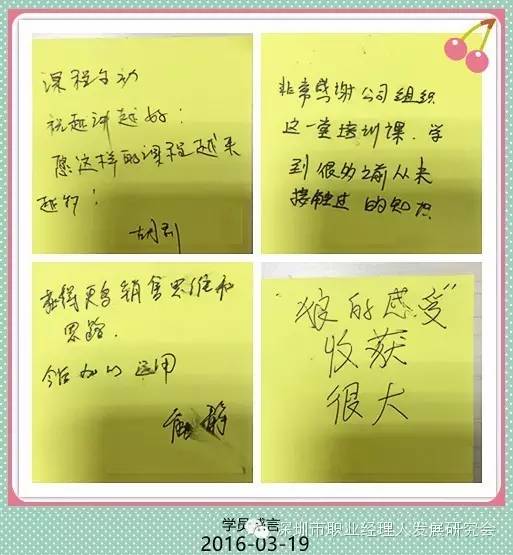 课程生动
祝越讲越好!
愿这样的课程越来
越好!
非常感谢公司组织
这一堂培训课,学
到很多之前从来
接触过的知识
获得更多销售思维和
思路.
今后加以运用
"狼的感受"
收获
很大
学员感言
深圳市职业经理人发展研究会
2016-03-19